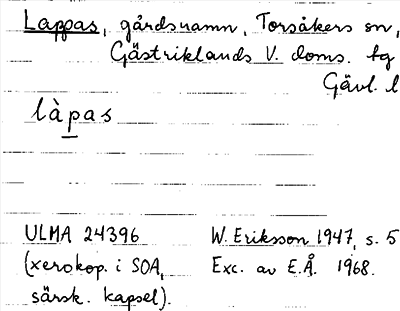 Lappas, gårdsnamn, Torsåkers sn,
Gästriklands V. doms. tg
Gävl. l
làpas
ULMA 24396
(xerokop. i SOA,
särsk. kapsel).
W. Eriksson 1947, s. 5
Exc. av E.Å. 1968.